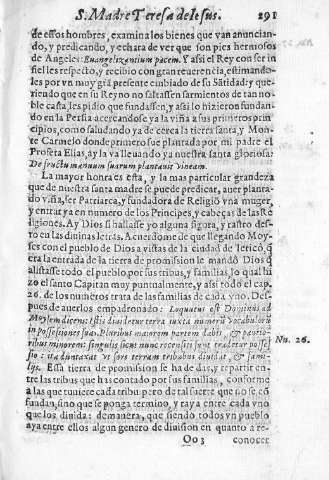 S. Madre Teresa de Iesus. 291
de essos hombres, examina los bienes que van anuncian-
do, y predicando, y echara de ver que son pies hermosos
de Angeles: Euangelizantium pacem. Y assi el Rey con ser in
fiel les respeto, y recibio con gran reuerencia, estimando-
les por vn muy grã presente embiado de su Sãtidad: y que-
riendo que en su Reyno no faltassen sarmientos de tan no
ble casta, les pidio que fundassen, y assi lo hizieron fundan
do en la Persia acercandose ya la viña a sus primeros prin
cipios, como saludando ya de cerca la tierra santa, y Mon-
te Carmelo donde primero fue plantada por mi padre el
Profeta Elias, ay la va lleuando ya nuestra santa gloriosa:
De fructu manuum suarum plantauit vineam.
La mayor honra es esta, y la mas particular grandeza
que de nuestra santa madre se puede predicar, auer planta-
do viña, ser Patriarca, y fundadora de Religiõ vna muger,
y entrar ya en numero de los Principes, y cabeças de las Re
ligiones. Ay Dios si hallasse yo alguna figura, y rastro des-
to en las diuinas letras. Acuerdome de que llegando Moy-
ses con el pueblo de Dios a vistas de la ciudad de Iericò, q̃
era la entrada de la tierra de promission le mandò Dios q̃
alistasse todo el pueblo por sus tribus, y familias, lo qual hi
zo el santo Capitan muy puntualmente, y assi todo el cap.
26. de los numeros trata de las familias de cada vno. Des-
pues de auerlos empadronado: Loquutus est Dominus ad
Moysem dicens: Istis diuidetur terra iuxta numerum vocabulorũ
in possessiones suas. Pluribus maiorem partem dabis, & pautio-
ribus minorem: singulis sicut nunc recensiti sunt tradetur posses
sio: ita duntaxat vt sors terram tribubus diuidat, & fami-
lijs. Esta tierra de promission se ha de dar, y repartir en-
tre las tribus que has contado por sus familias, conforme
a las que tuuiere cada tribu pero de tal suerte que no se cõ
fundan, sino que se ponga termino, y raya entre cada vno
que los diuida: de manera, que siendo todos vn pueblo
aya entre ellos algun genero de diuision en quanto a re-
Nu. 26.
Oo 3 conocer